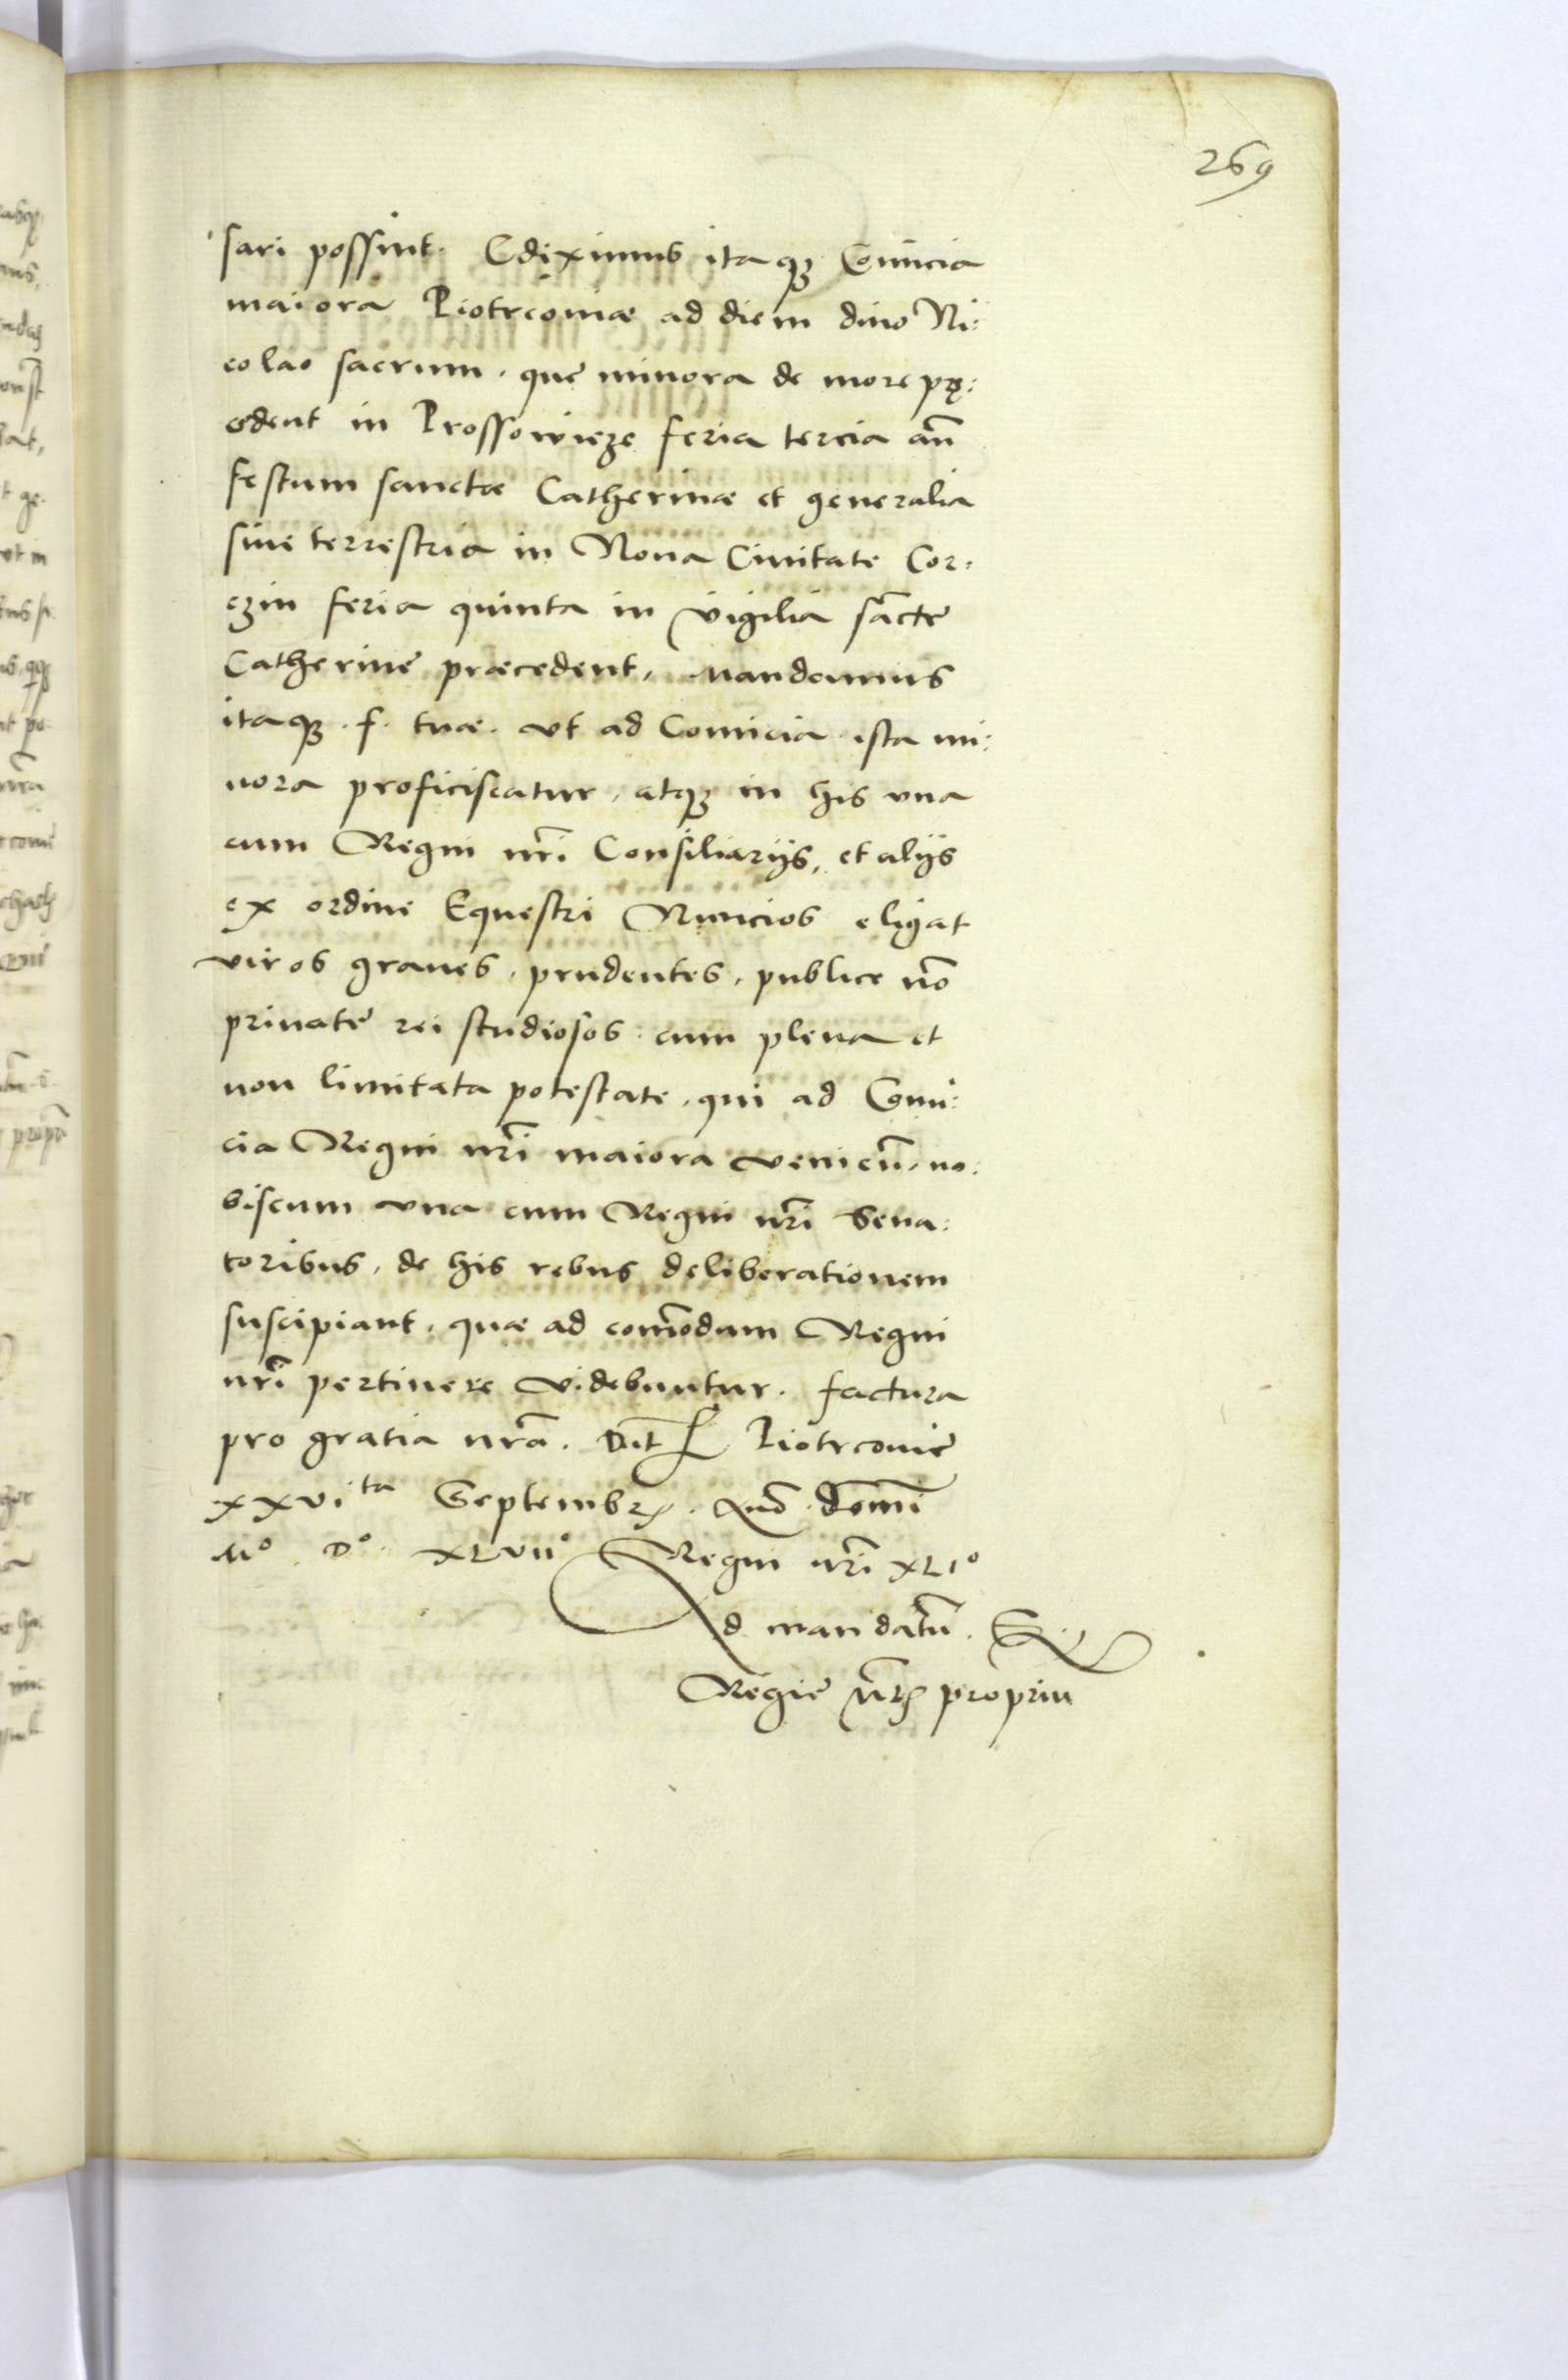 269
sari possint. Ediximus itaq; Comicia
maiora Piotrcoviæ ad diem divo Ni:
colao sacrum. que minora de more pę:
cedent in Prossowicze feria tercia an̄
festum sanctæ Catherinæ et generalia
sive terrestria in Nova Civitate Cor:
czin feria quinta in vigilia sāctę
Catherinę præcedent, mandamus
itaq; . f. tuæ. vt ad Comicia ista mi:
nora proficiscatur, atq; in his vna
cum Regni nr̄i Consiliarijs, et alijs
ex ordine Equestri Nuncios eligat
viros graves, prudentes, publicę nō
privatę rei studiosos cum plena et
non limitata potestate, qui ad Comi:
cia Regni nr̄i maiora venien̄, no:
biscum vna cum Regni nr̄i Sena:
toribus, de his rebus deliberationem
suscipiant, quæ ad com̄odum Regni
nr̄i pertinere videbuntur. factura
pro gratia nr̄a. Dat Piotrcovię
XXVI ta Septembr. Anō. Domī
M° D° XLVII° Regni nr̄i XLI°
Ad mandatū. S.
Regię proprīu